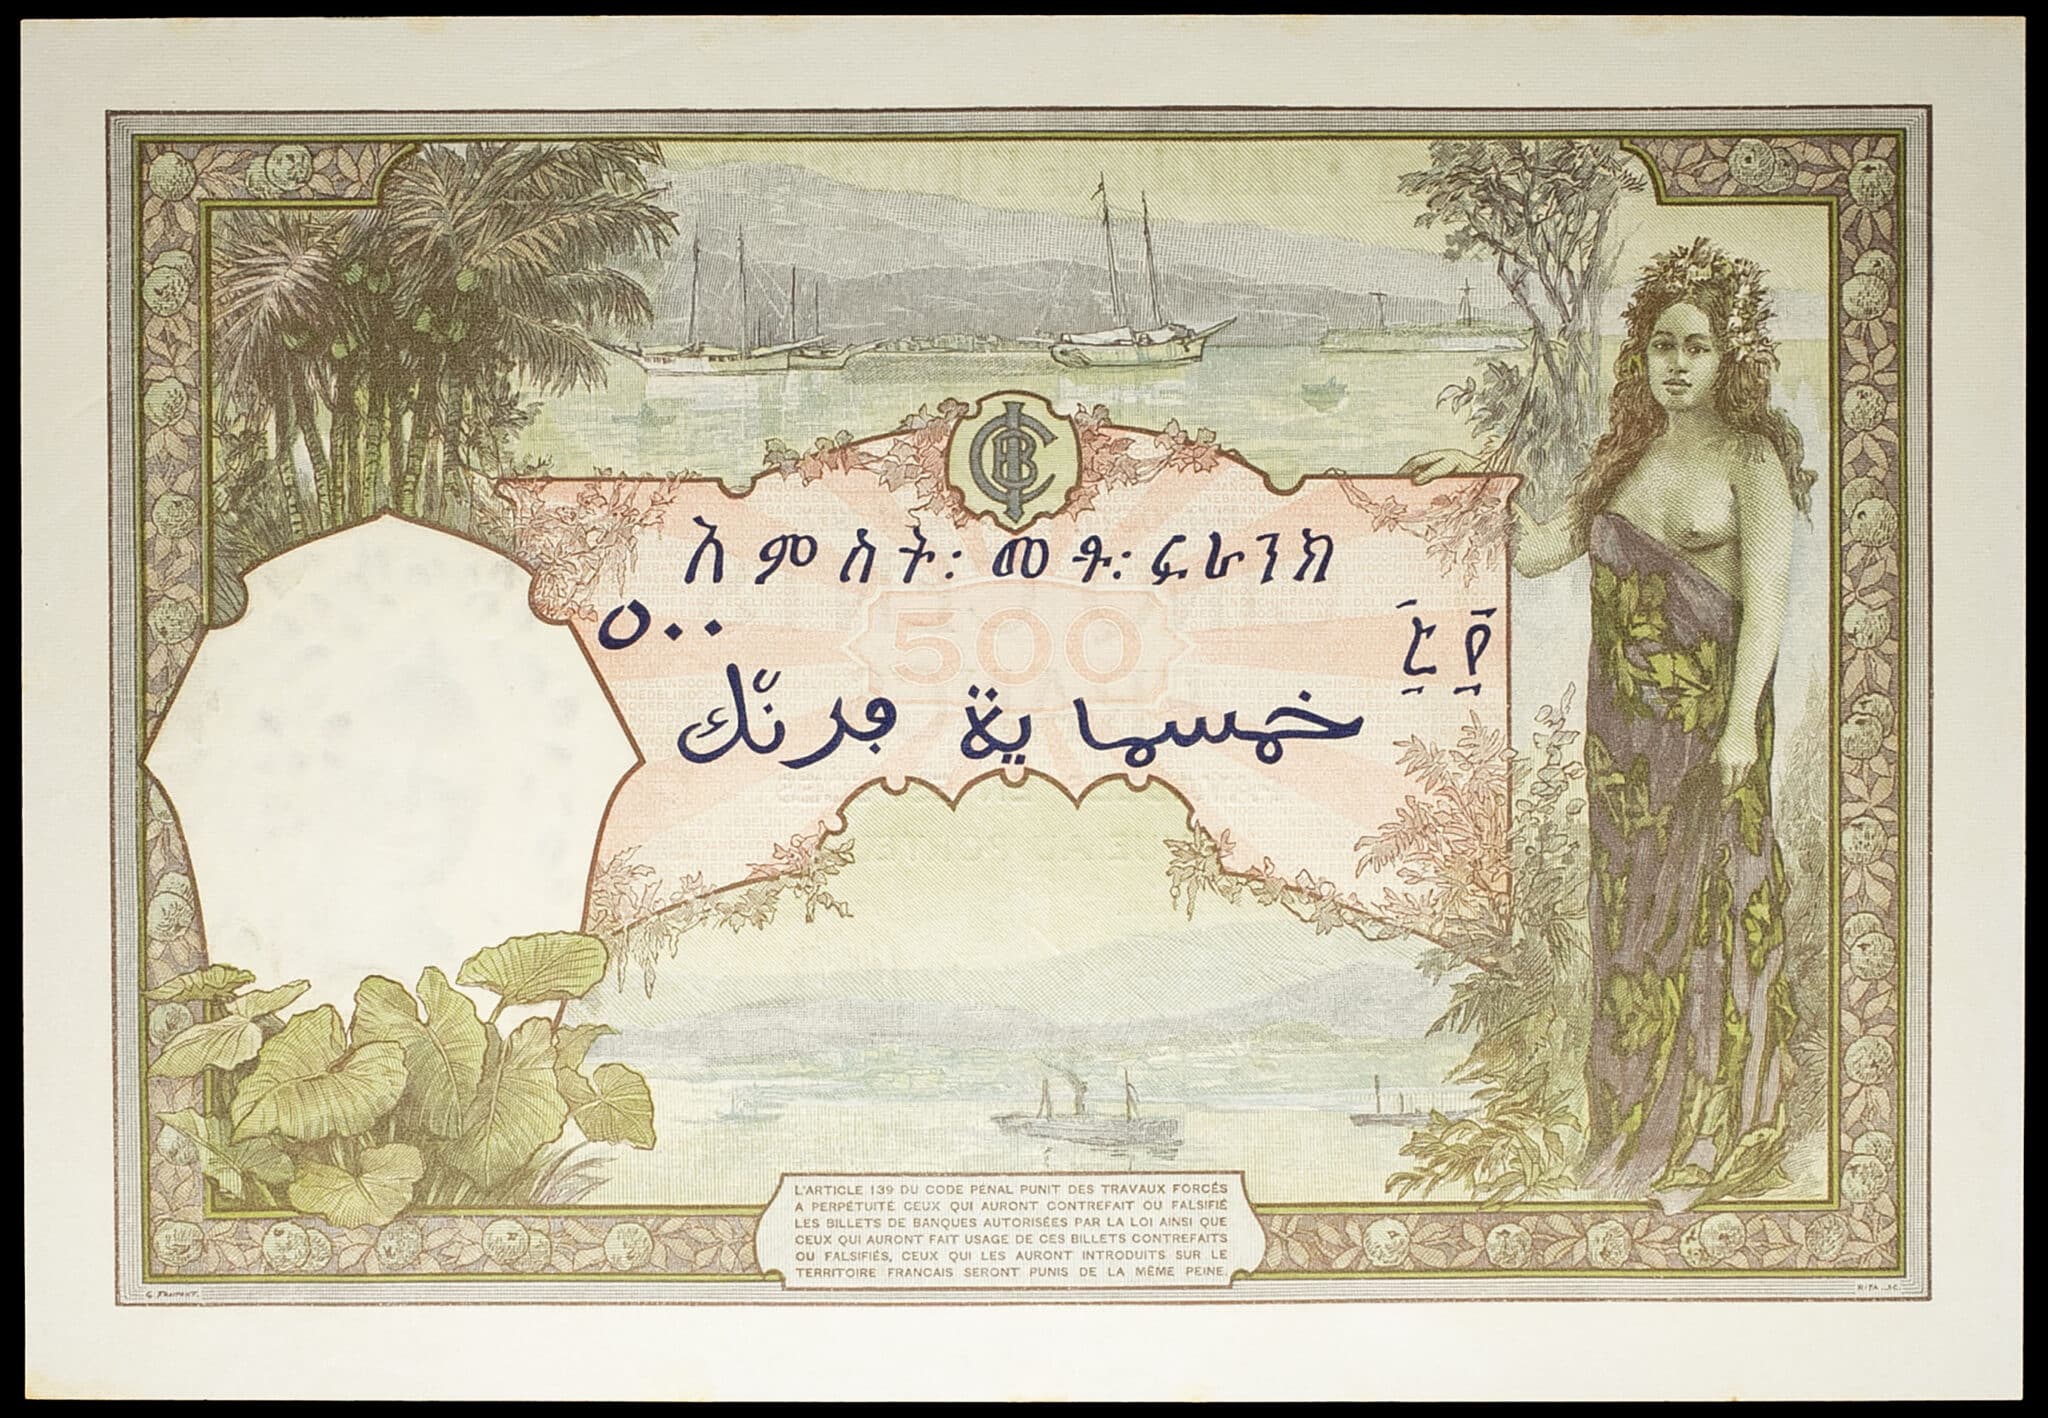 CIB
አምስት፡መቶ፡ፍራንክ
٥٠٠
500
፭፻
خمسماية فرنّك
L'ARTICLE 139 DU CODE PÉNAL PUNIT DES TRAVAUX FORCÉS
A PERPÉTUITÉ CEUX QUI AURONT CONTREFAIT OU FALSIFIÉ
LES BILLETS DE BANQUES AUTORISÉES PAR LA LOI AINSI QUE
CEUX QUI AURONT FAIT USAGE DE CES BILLETS CONTREFAITS
OU FALSIFIÉS, CEUX QUI LES AURONT INTRODUITS SUR LE
TERRITOIRE FRANCAIS SERONT PUNIS DE LA MÊME PEINE.
G. FRAIPONT.
RITA .SC.